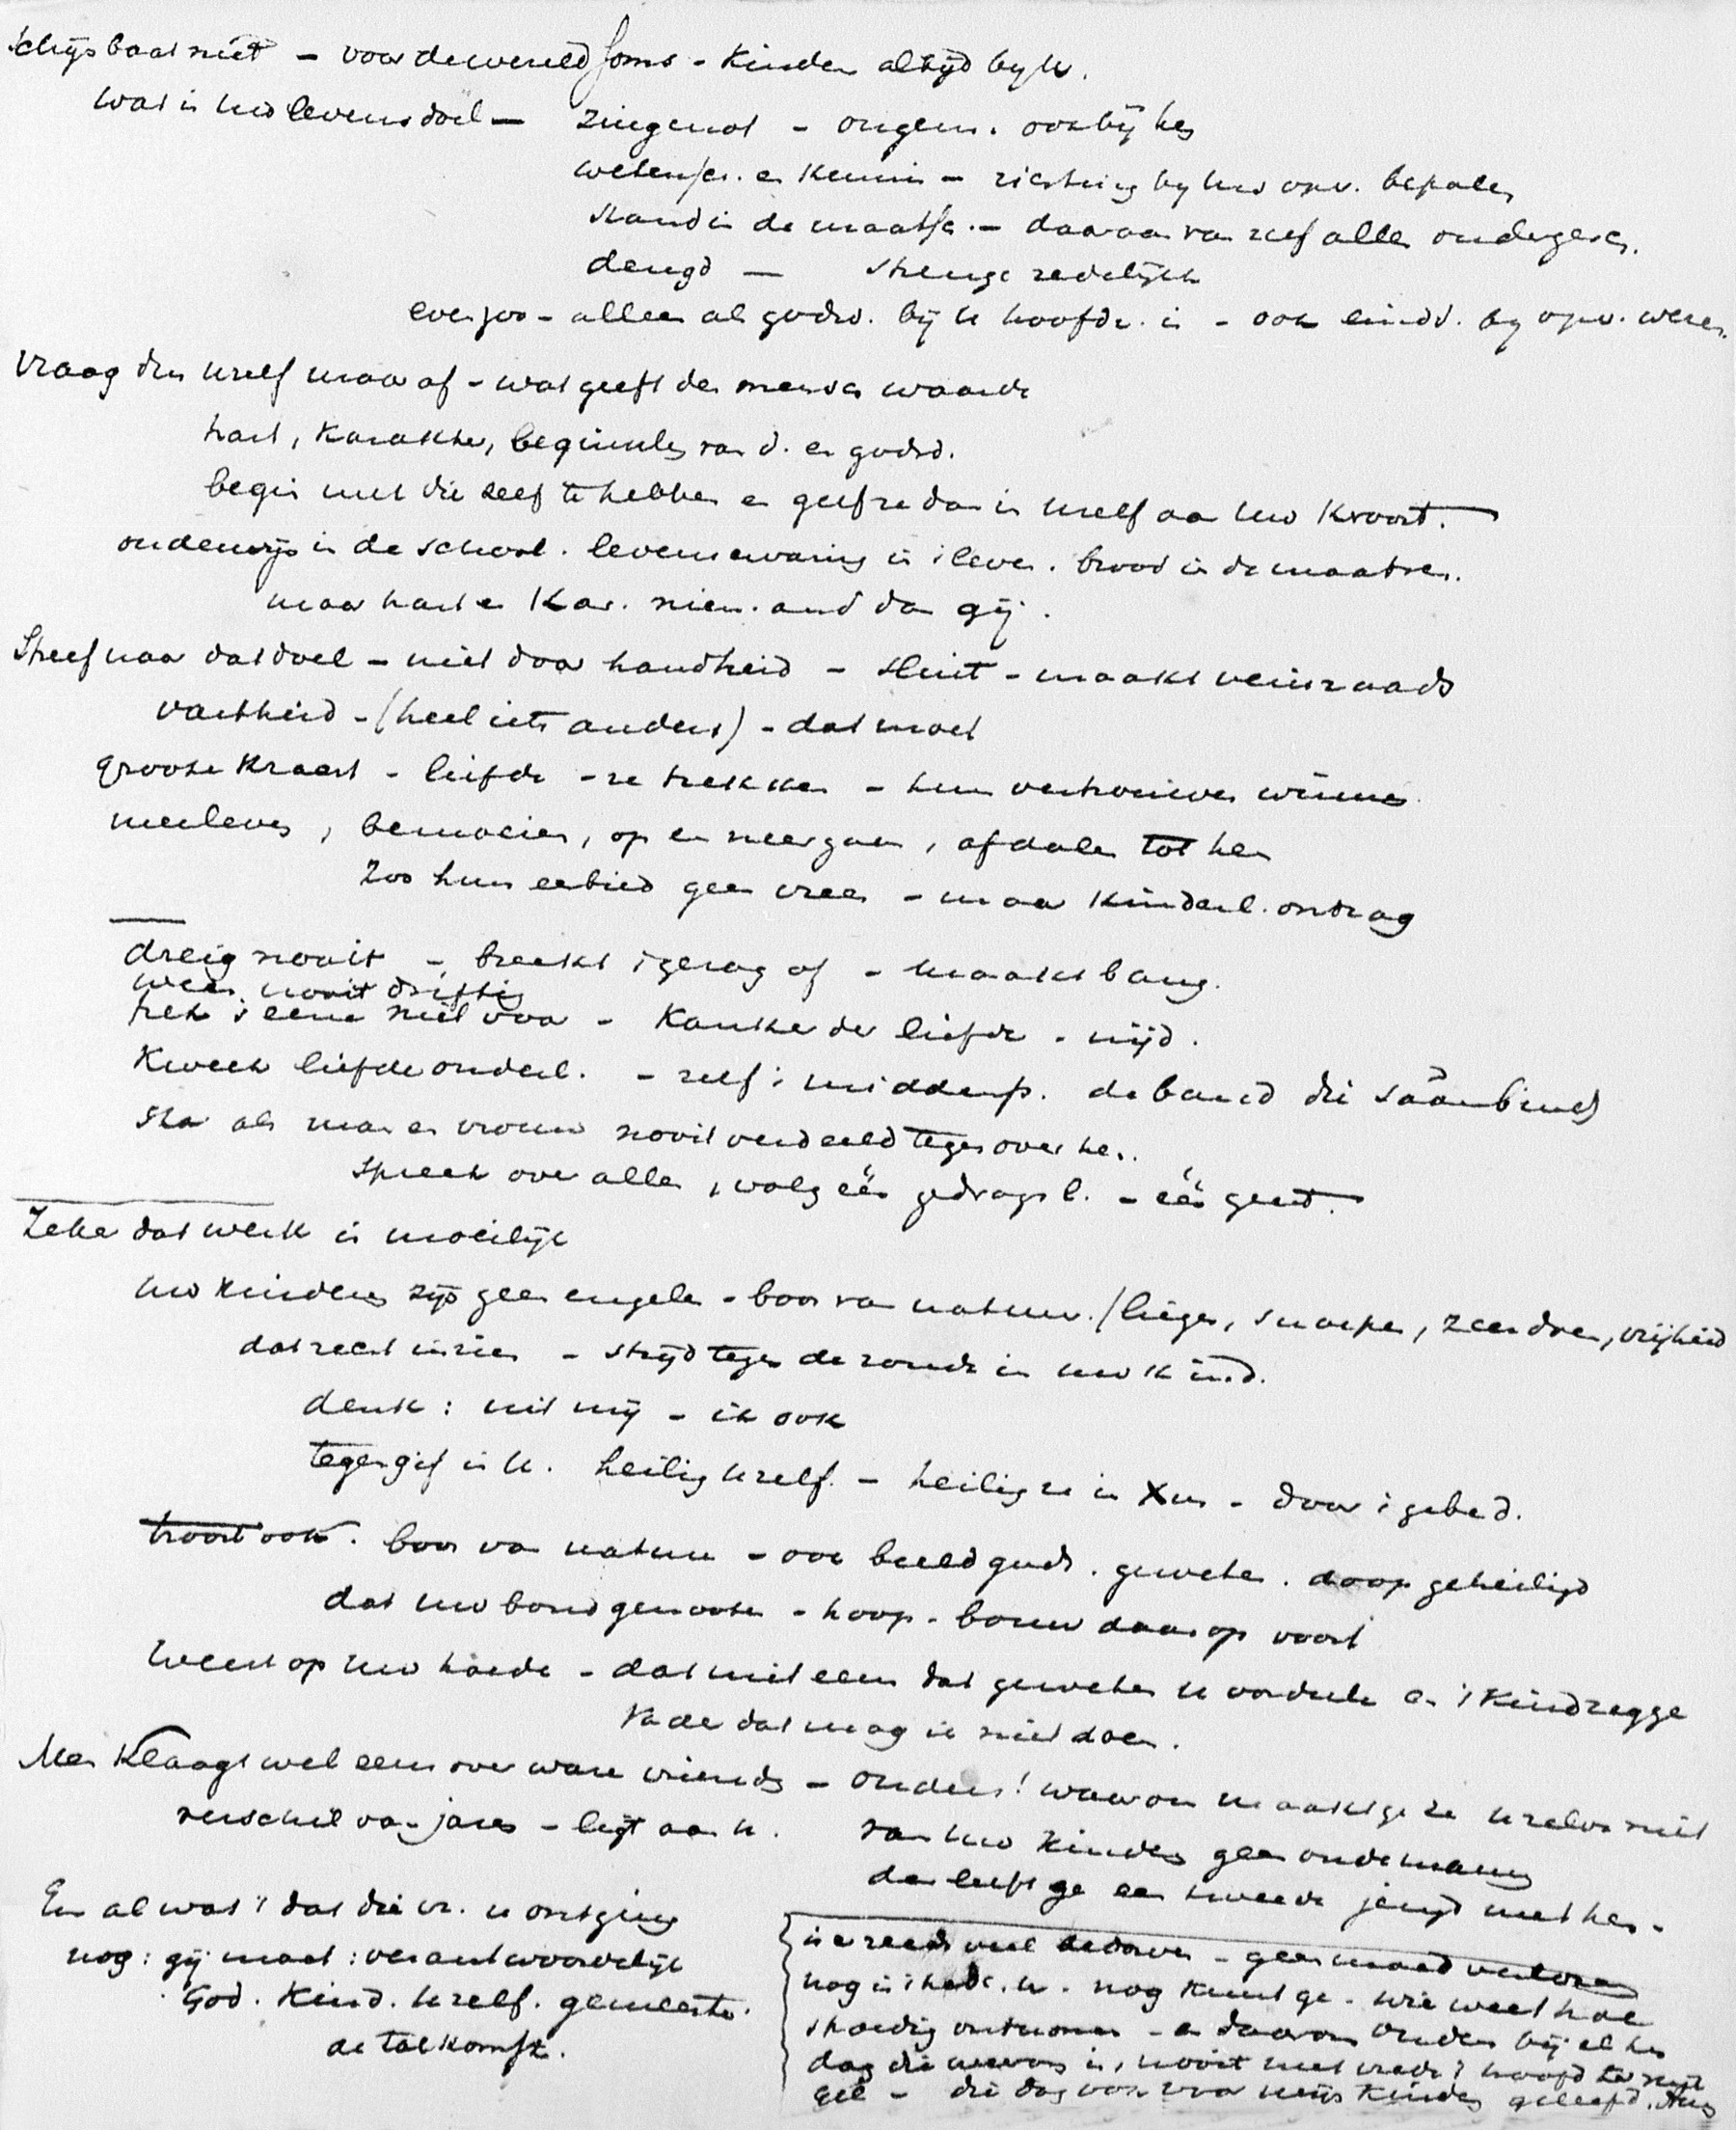 schijn baat niet - voor de wereld soms - Kinderen altijd by U.
Wat is uw levensdoel - zingenot - ongem. ook bij hen
wetensch. en kennis - richting by uw opv. bepalen
stand in de maatsch. - daaraan van zelf alles ondergesch.
deugd - strenge zedelijkh
evenzoo - alleen als godsd. bij U hoofdz. is - ook eindd. by opv. wezen.
Vraag dus Uzelf maar af - wat geeft den mensch waarde
hart, Karakter, beginselen van d. en godsd.
begin met die zelf te hebben en geef ze dan in Uzelf aan uw Kroost.
onderwijs in de school. levenservaring in 't leven. brood in de maatsch.
maar hart en Kar. niem. and dan gij.
Streef naar dat doel - niet door hardheid - sluit - maakt veinzaards
vastheid - (heel iets anders) - dat moet
groote Kracht - liefde - ze trekken - hun vertrouwen winnen
meeleven, bemoeien, op en neer gaan, afdalen tot hen
Zoo hun eerbied geen vrees - maar Kinderl. ontzag
dreig nooit - breekt 't gezag af - maakt bang.
wees nooit driftig
trek 't eene niet voor - Kanker der liefde - nijd.
Kweek liefde onderl. - zelf 't middenp. de band die säämbindt
sta als man en vrouw nooit verdeeld tegenover hen.
Spreek over alles, volg één gedragsl. - één geest.
Zeker dat werk is moeilijk
uw kinderen zijn geen engelen - boos van natuur. (liegen, snoepen, zeer doen, vrijheid
dat recht inzien - strijd tegen de zonde in uw Kind.
denk: uit mij - ik ook
tegengif in U. heilig Uzelf. - heilig ze in Xus - door 't gebed.
troost ook. boos van natuur - ook beeld Gods. geweten. doop geheiligd
dat uw bondgenooten - hoop - bouw daarop voort
Weest op uw hoede - dat niet eens dat geweten U oordeele en 't Kind zegge
Vader dat mag ik niet doen.
Men Klaagt wel eens over ware vrienden - ouders! waarom maakt ge ze Uzelve niet
verschil van jaren - ligt aan U. van uw Kinderen geen oude mannen
dan leeft ge een tweede jeugd met hen -
En al was 't dat die vr. U ontging
nog: gij moet: verantwoordelijk
God. Kind. Uzelf. gemeente.
de toekomst.
is er reeds veel bedorven - geen moed verloren
nog is 't heden. U. nog kunt ge - wie weet hoe
spoedig ontnomen - en daarom Ouders bij elken
dag die u gegeven is, nooit met vrede 't hoofd ter rust
gel - die dag ook voor mijn Kinderen geleefd. Am